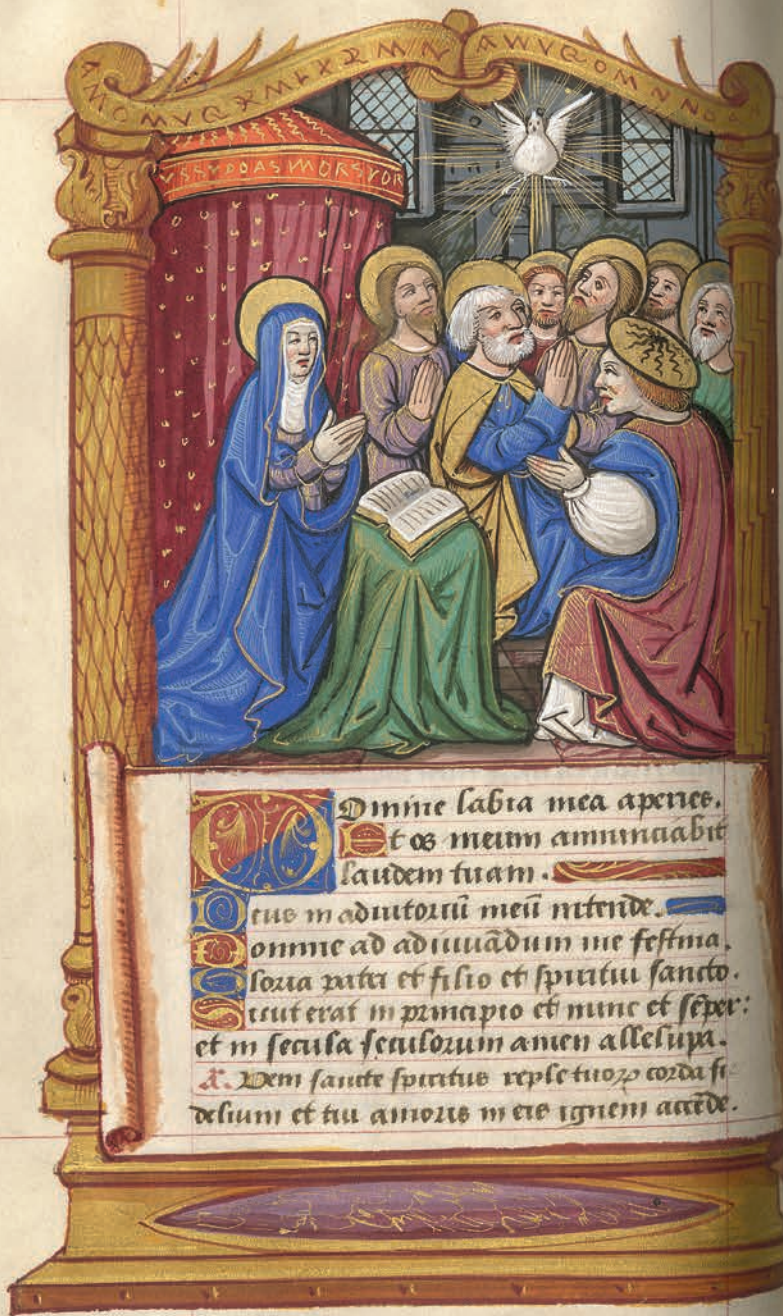 Domine labia mea aperies.
Et os meum annunciabit
laudem tuam.
Deus in adiutoriū meū intende.
Domine ad adiuuādum me festina.
Gloria patri et filio et spiritui sancto.
Sicut erat in principio et nunc et sēper:
et in secula seculorum amen alleluya.
Veni sancte spiritus reple tuoꝝ corda fi
delium et tui amoris in eis ignem accēde.